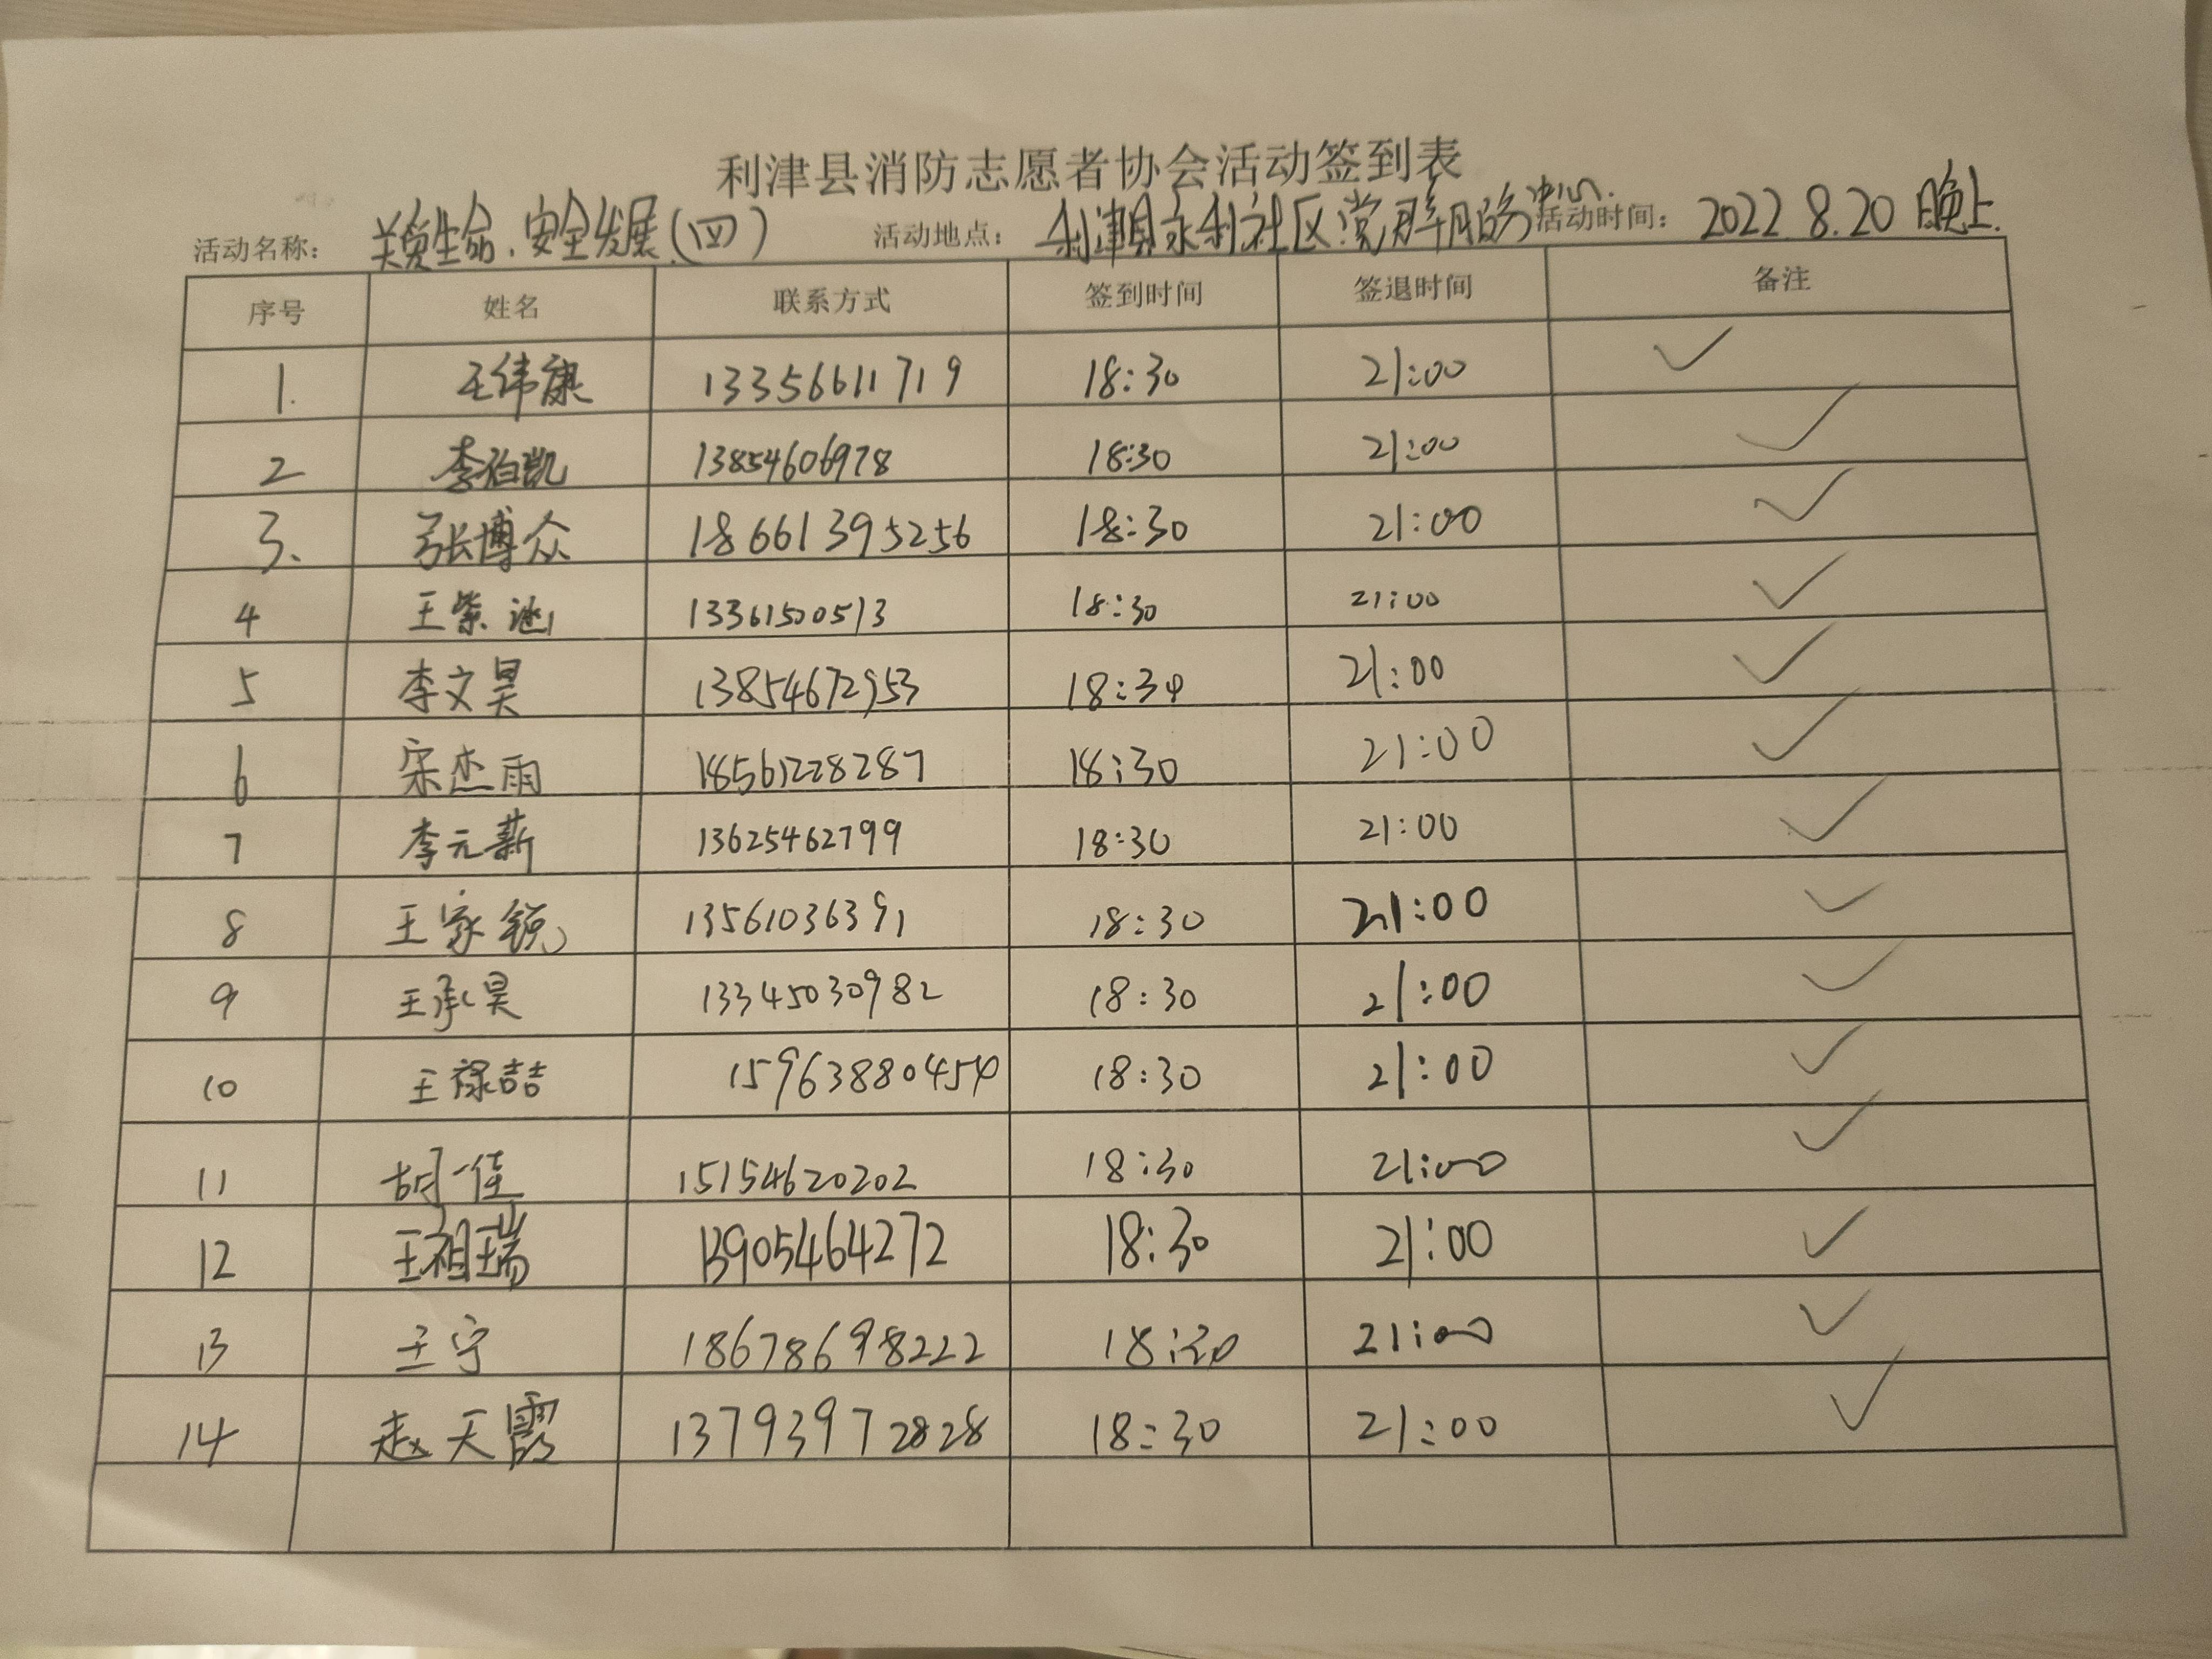 利津县消防志愿者协会活动签到表
活动名称: 关爱生命、安全发展(四) 活动地点: 利津县永利社区党群服务中心. 活动时间: 2022.8.20 晚上.
序号 姓名 联系方式 签到时间 签退时间 备注
1. 王纬康 13356611719 18:30 21:00 ✓
2 李伯凯 13854606978 18:30 21:00 ✓
3、 张博众 18661395256 18:30 21:00 ✓
4 王紫涵 13361500513 18:30 21:00 ✓
5 李文昊 13854672953 18:30 21:00 ✓
6 宋杰雨 18561228287 18:30 21:00 ✓
7 李元薪 13625462799 18:30 21:00 ✓
8 王家锐 13561036391 18:30 21:00 ✓
9 王承昊 13345030982 18:30 21:00 ✓
10 王禄喆 15963880454 18:30 21:00 ✓
11 胡一佳 15154620202 18:30 21:00 ✓
12 王祖瑞 13905464272 18:30 21:00 ✓
13 王宁 18678698222 18:30 21:00 ✓
14 赵天霞 13793972828 18:30 21:00 ✓